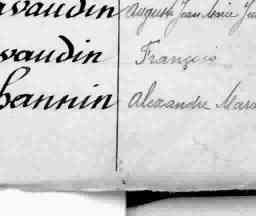 avaudin Auguste Jean Marie
vaudin François
hannin Alexandre Mar